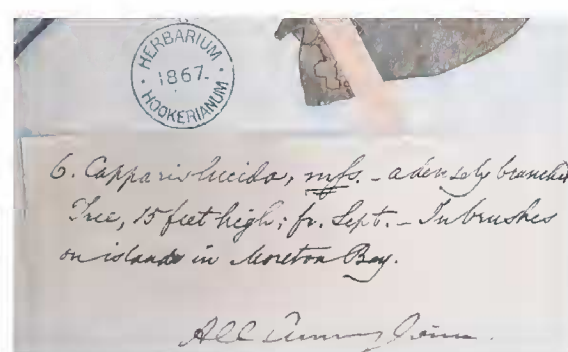 HERBARIUM
1867.
HOOKERIANUM
6. Capparis lucida, mfs. - a densely branched
Tree, 15 feet high; fr. Sept. - In brushes
on islands in Moreton Bay.
All Cunningham.